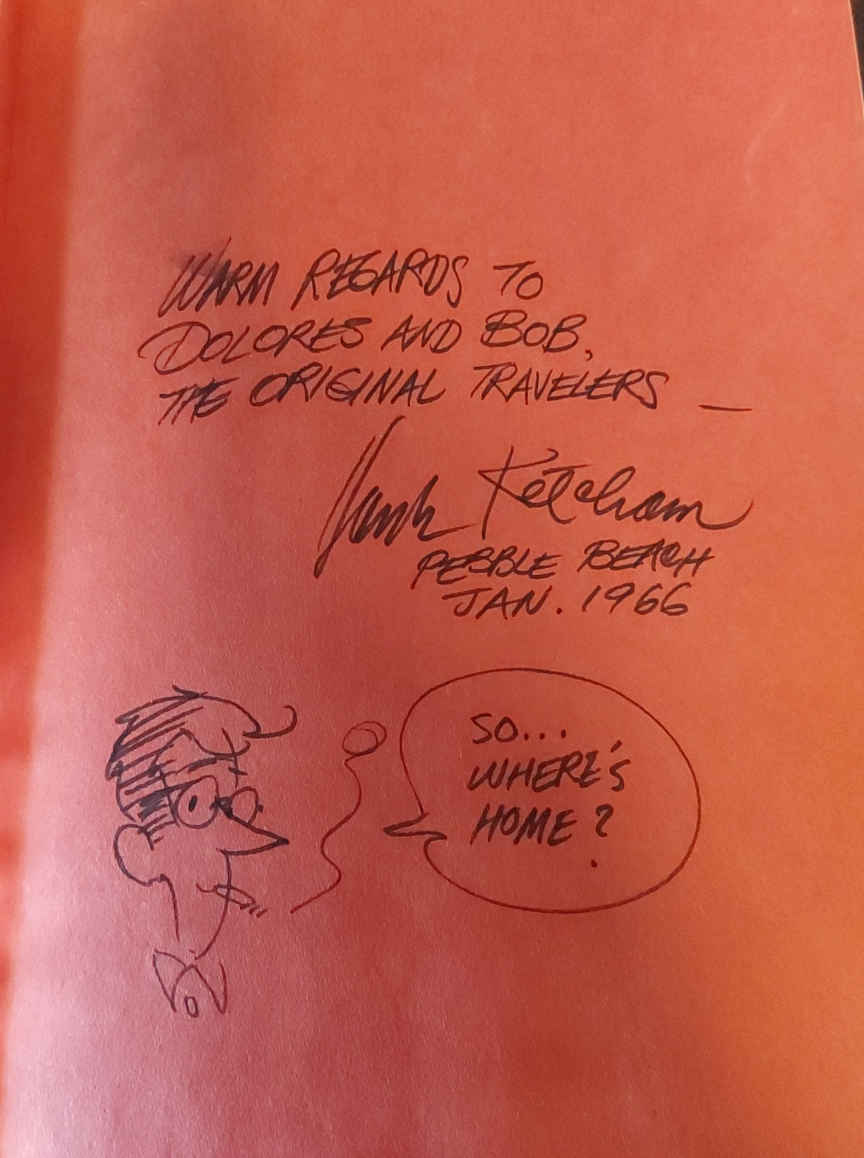 WARM REGARDS TO
DOLORES AND BOB,
THE ORIGINAL TRAVELERS —
Hank Ketcham
PEBBLE BEACH
JAN. 1966
SO...
WHERE'S
HOME?